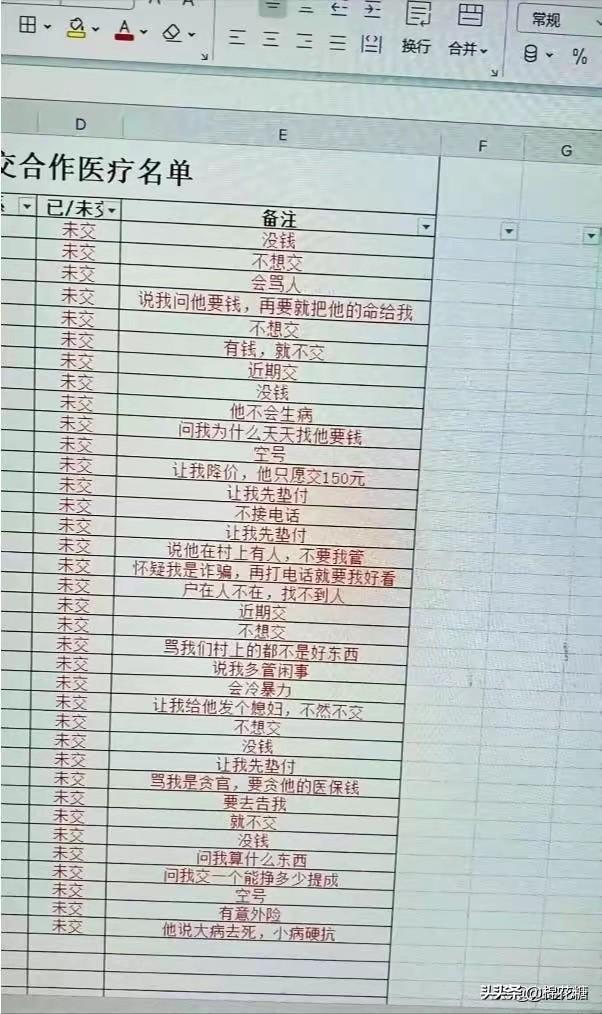 常规
换行
合并
%
D
E
F
G
交合作医疗名单
已/未交
备注
未交 没钱
未交 不想交
未交 会骂人
未交 说我问他要钱，再要就把他的命给我
未交 不想交
未交 有钱，就不交
未交 近期交
未交 没钱
未交 他不会生病
未交 问我为什么天天找他要钱
未交 空号
未交 让我降价，他只愿交150元
未交 让我先垫付
未交 不接电话
未交 让我先垫付
未交 说他在村上有人，不要我管
未交 怀疑我是诈骗，再打电话就要我好看
未交 户在人不在，找不到人
未交 近期交
未交 不想交
未交 骂我们村上的都不是好东西
未交 说我多管闲事
未交 会冷暴力
未交 让我给他发个媳妇，不然不交
未交 不想交
未交 没钱
未交 让我先垫付
未交 骂我是贪官，要贪他的医保钱
未交 要去告我
未交 就不交
未交 没钱
未交 问我算什么东西
未交 问我交一个能挣多少提成
未交 空号
未交 有意外险
未交 他说大病去死，小病硬抗
头条@棉花糖